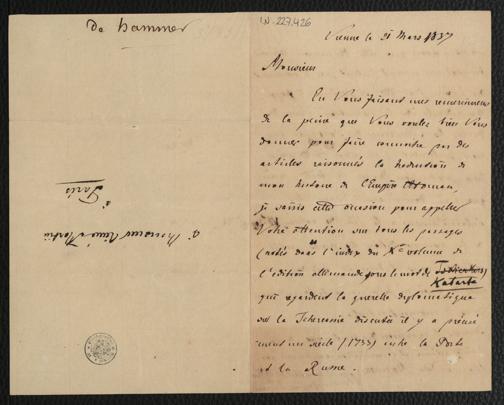 De Hammer
I.N. 227.426
Vienne le 21 Mars 1837
Monsieur
En Vous faisant mes remercimens
de la peine que Vous voulez bien Vous
donner pour faire connaitre par des
articles raisonnés la traduction de
mon histoire de l'Empire Ottoman,
je saisis cette occasion pour appeller
Votre attention sur tous les passages
(notés dans l'index du X.e volume de
l'édition allemande sous le mot de
Kabarta
qui regardent la querelle diplomatique
sur la Tcherkessie discutée il y a préci
sement un siècle (1733) entre la Porte
et la Russie.
à Monsieur
à
Paris